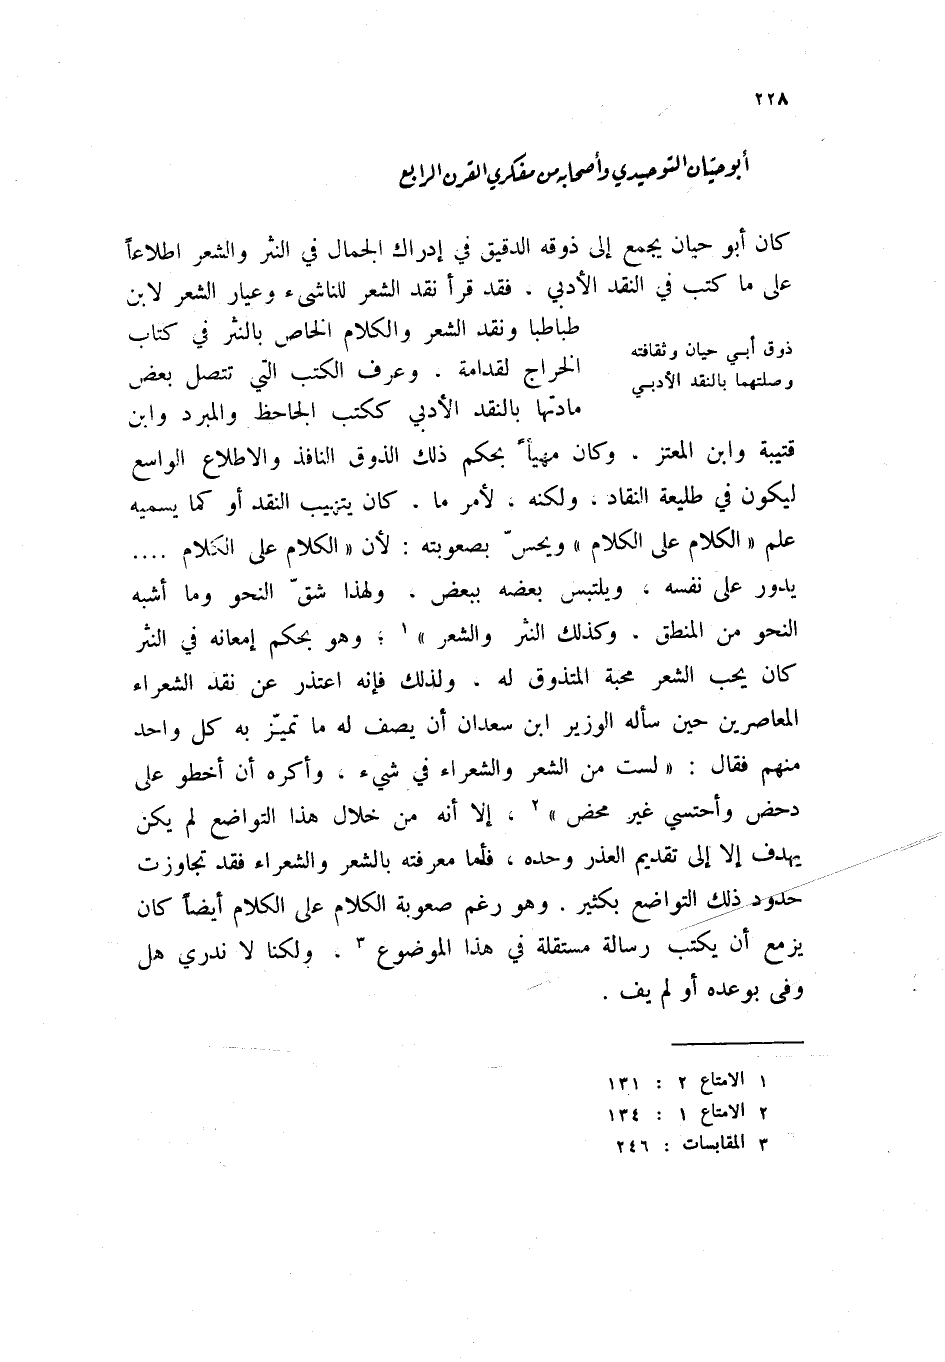 ٢٢٨
أبو حيّان التوحيدي وأصحابه من مفكري القرن الرابع
كان أبو حيان يجمع إلى ذوقه الدقيق في إدراك الجمال في النثر والشعر اطلاعاً
على ما كتب في النقد الأدبي . فقد قرأ نقد الشعر للناشىء وعيار الشعر لابن
طباطبا ونقد الشعر والكلام الخاص بالنثر في كتاب
ذوق أبي حيان وثقافته
الخراج لقدامة . وعرف الكتب التي تتصل بعض
وصلتهما بالنقد الأدبي
مادتها بالنقد الأدبي ككتب الجاحظ والمبرد وابن
قتيبة وابن المعتز . وكان مهيأ بحكم ذلك الذوق النافذ والاطلاع الواسع
ليكون في طليعة النقاد ، ولكنه ، لأمر ما . كان يتهيب النقد أو كما يسميه
علم « الكلام على الكلام » ويحسّ بصعوبته : لأن « الكلام على الكلام ....
يدور على نفسه ، ويلتبس بعضه ببعض . ولهذا شقّ النحو وما أشبه
النحو من المنطق . وكذلك النثر والشعر » ١ ؛ وهو بحكم إمعانه في النثر
كان يحب الشعر محبة المتذوق له . ولذلك فإنه اعتذر عن نقد الشعراء
المعاصرين حين سأله الوزير ابن سعدان أن يصف له ما تميّز به كل واحد
منهم فقال : « لست من الشعر والشعراء في شيء ، وأكره أن أخطو على
دحض وأحتسي غير محض » ٢ ، إلا أنه من خلال هذا التواضع لم يكن
يهدف إلا إلى تقديم العذر وحده ، فلما معرفته بالشعر والشعراء فقد تجاوزت
حدود ذلك التواضع بكثير . وهو رغم صعوبة الكلام على الكلام أيضاً كان
يزمع أن يكتب رسالة مستقلة في هذا الموضوع ٣ ، ولكنا لا ندري هل
وفى بوعده أو لم يف .
١ الامتاع ٢ : ١٣١
٢ الامتاع ١ : ١٣٤
٣ المقابسات : ٢٤٦